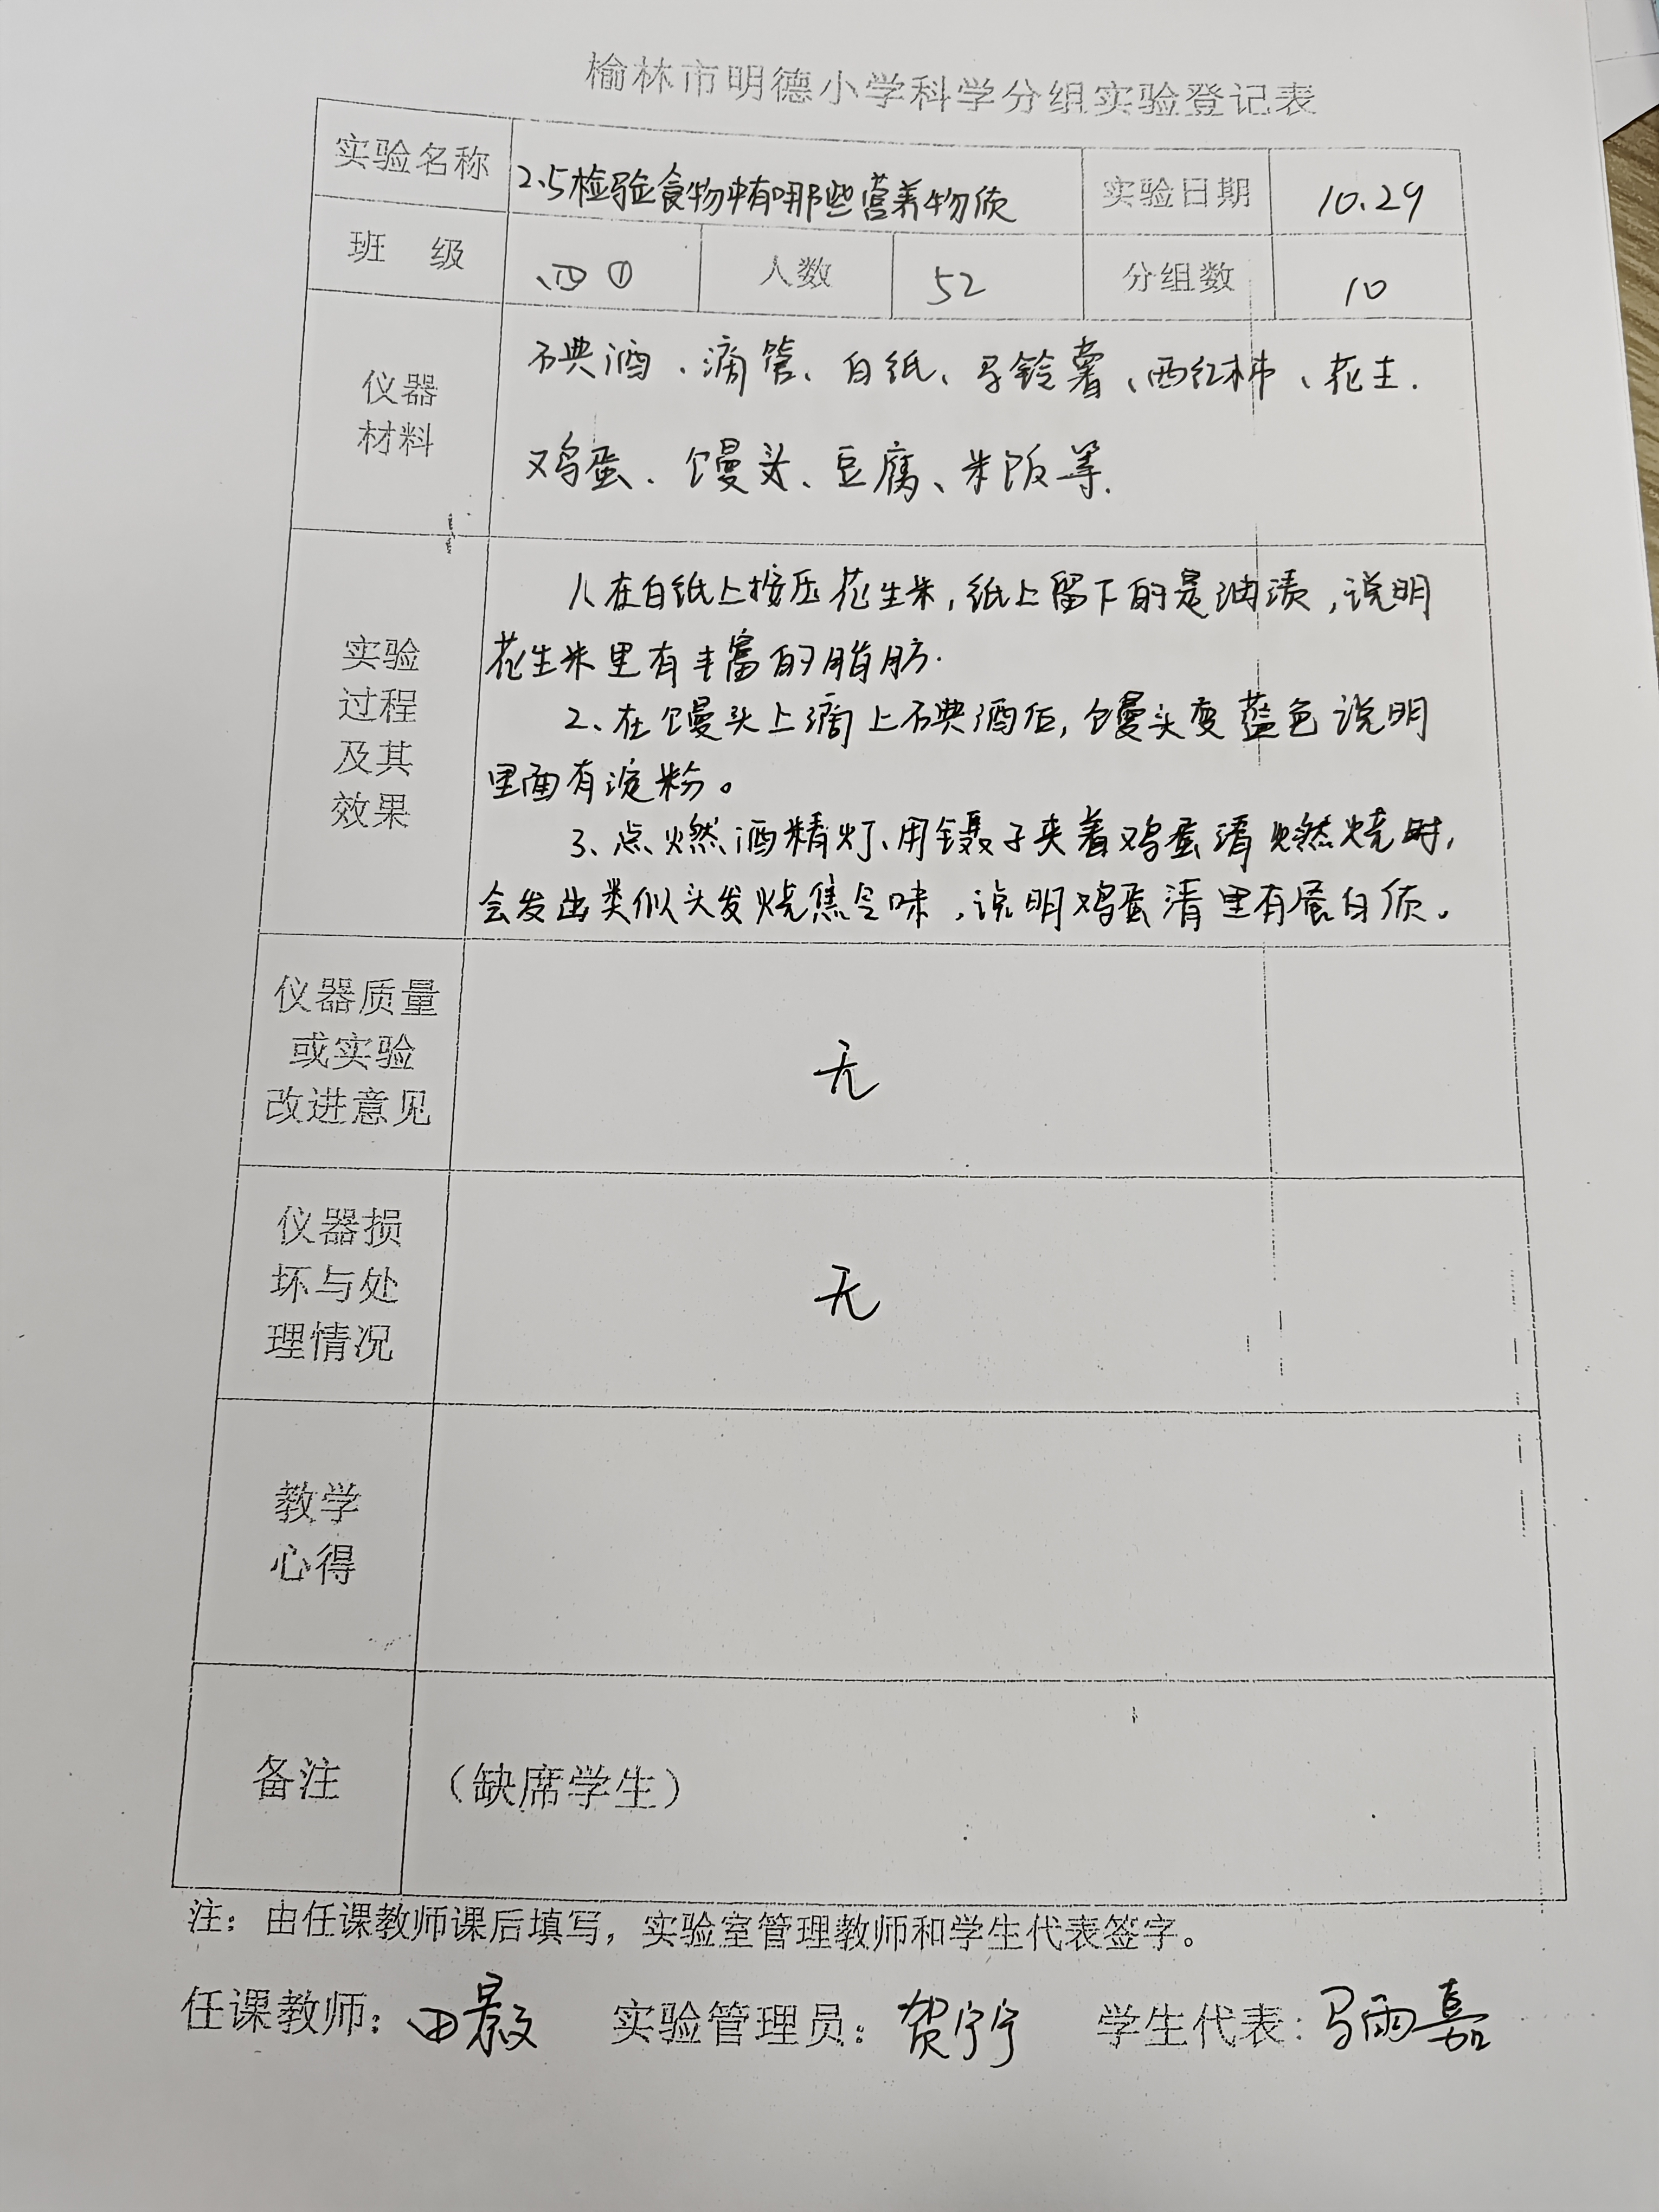 榆林市明德小学科学分组实验登记表
实验名称 2.5检验食物中有哪些营养物质 实验日期 10.29
班 级 四① 人数 52 分组数 10
仪器材料 碘酒、滴管、白纸、马铃薯、西红柿、花生.
鸡蛋、馒头、豆腐、米饭等.
实验过程及其效果
1、在白纸上按压花生米,纸上留下的是油渍,说明
花生米里有丰富的脂肪.
2、在馒头上滴上碘酒后,馒头变蓝色说明
里面有淀粉。
3、点燃酒精灯、用镊子夹着鸡蛋清燃烧时,
会发出类似头发烧焦气味,说明鸡蛋清里有蛋白质。
仪器质量或实验改进意见 无
仪器损坏与处理情况 无
教学心得
备注 (缺席学生)
注:由任课教师课后填写,实验室管理教师和学生代表签字。
任课教师: 田 实验管理员: 贺宁宁 学生代表: 马雨嘉